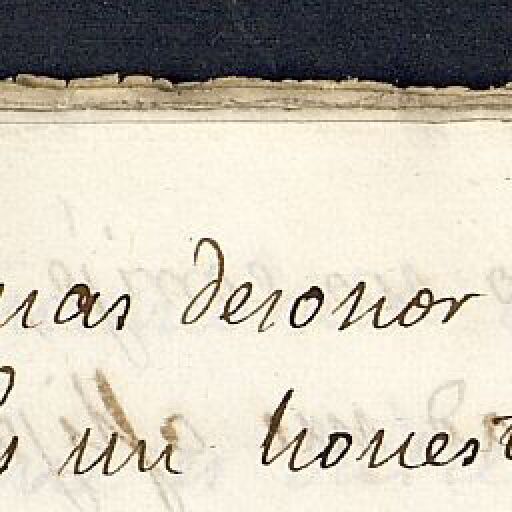 nas desonor
s un honest